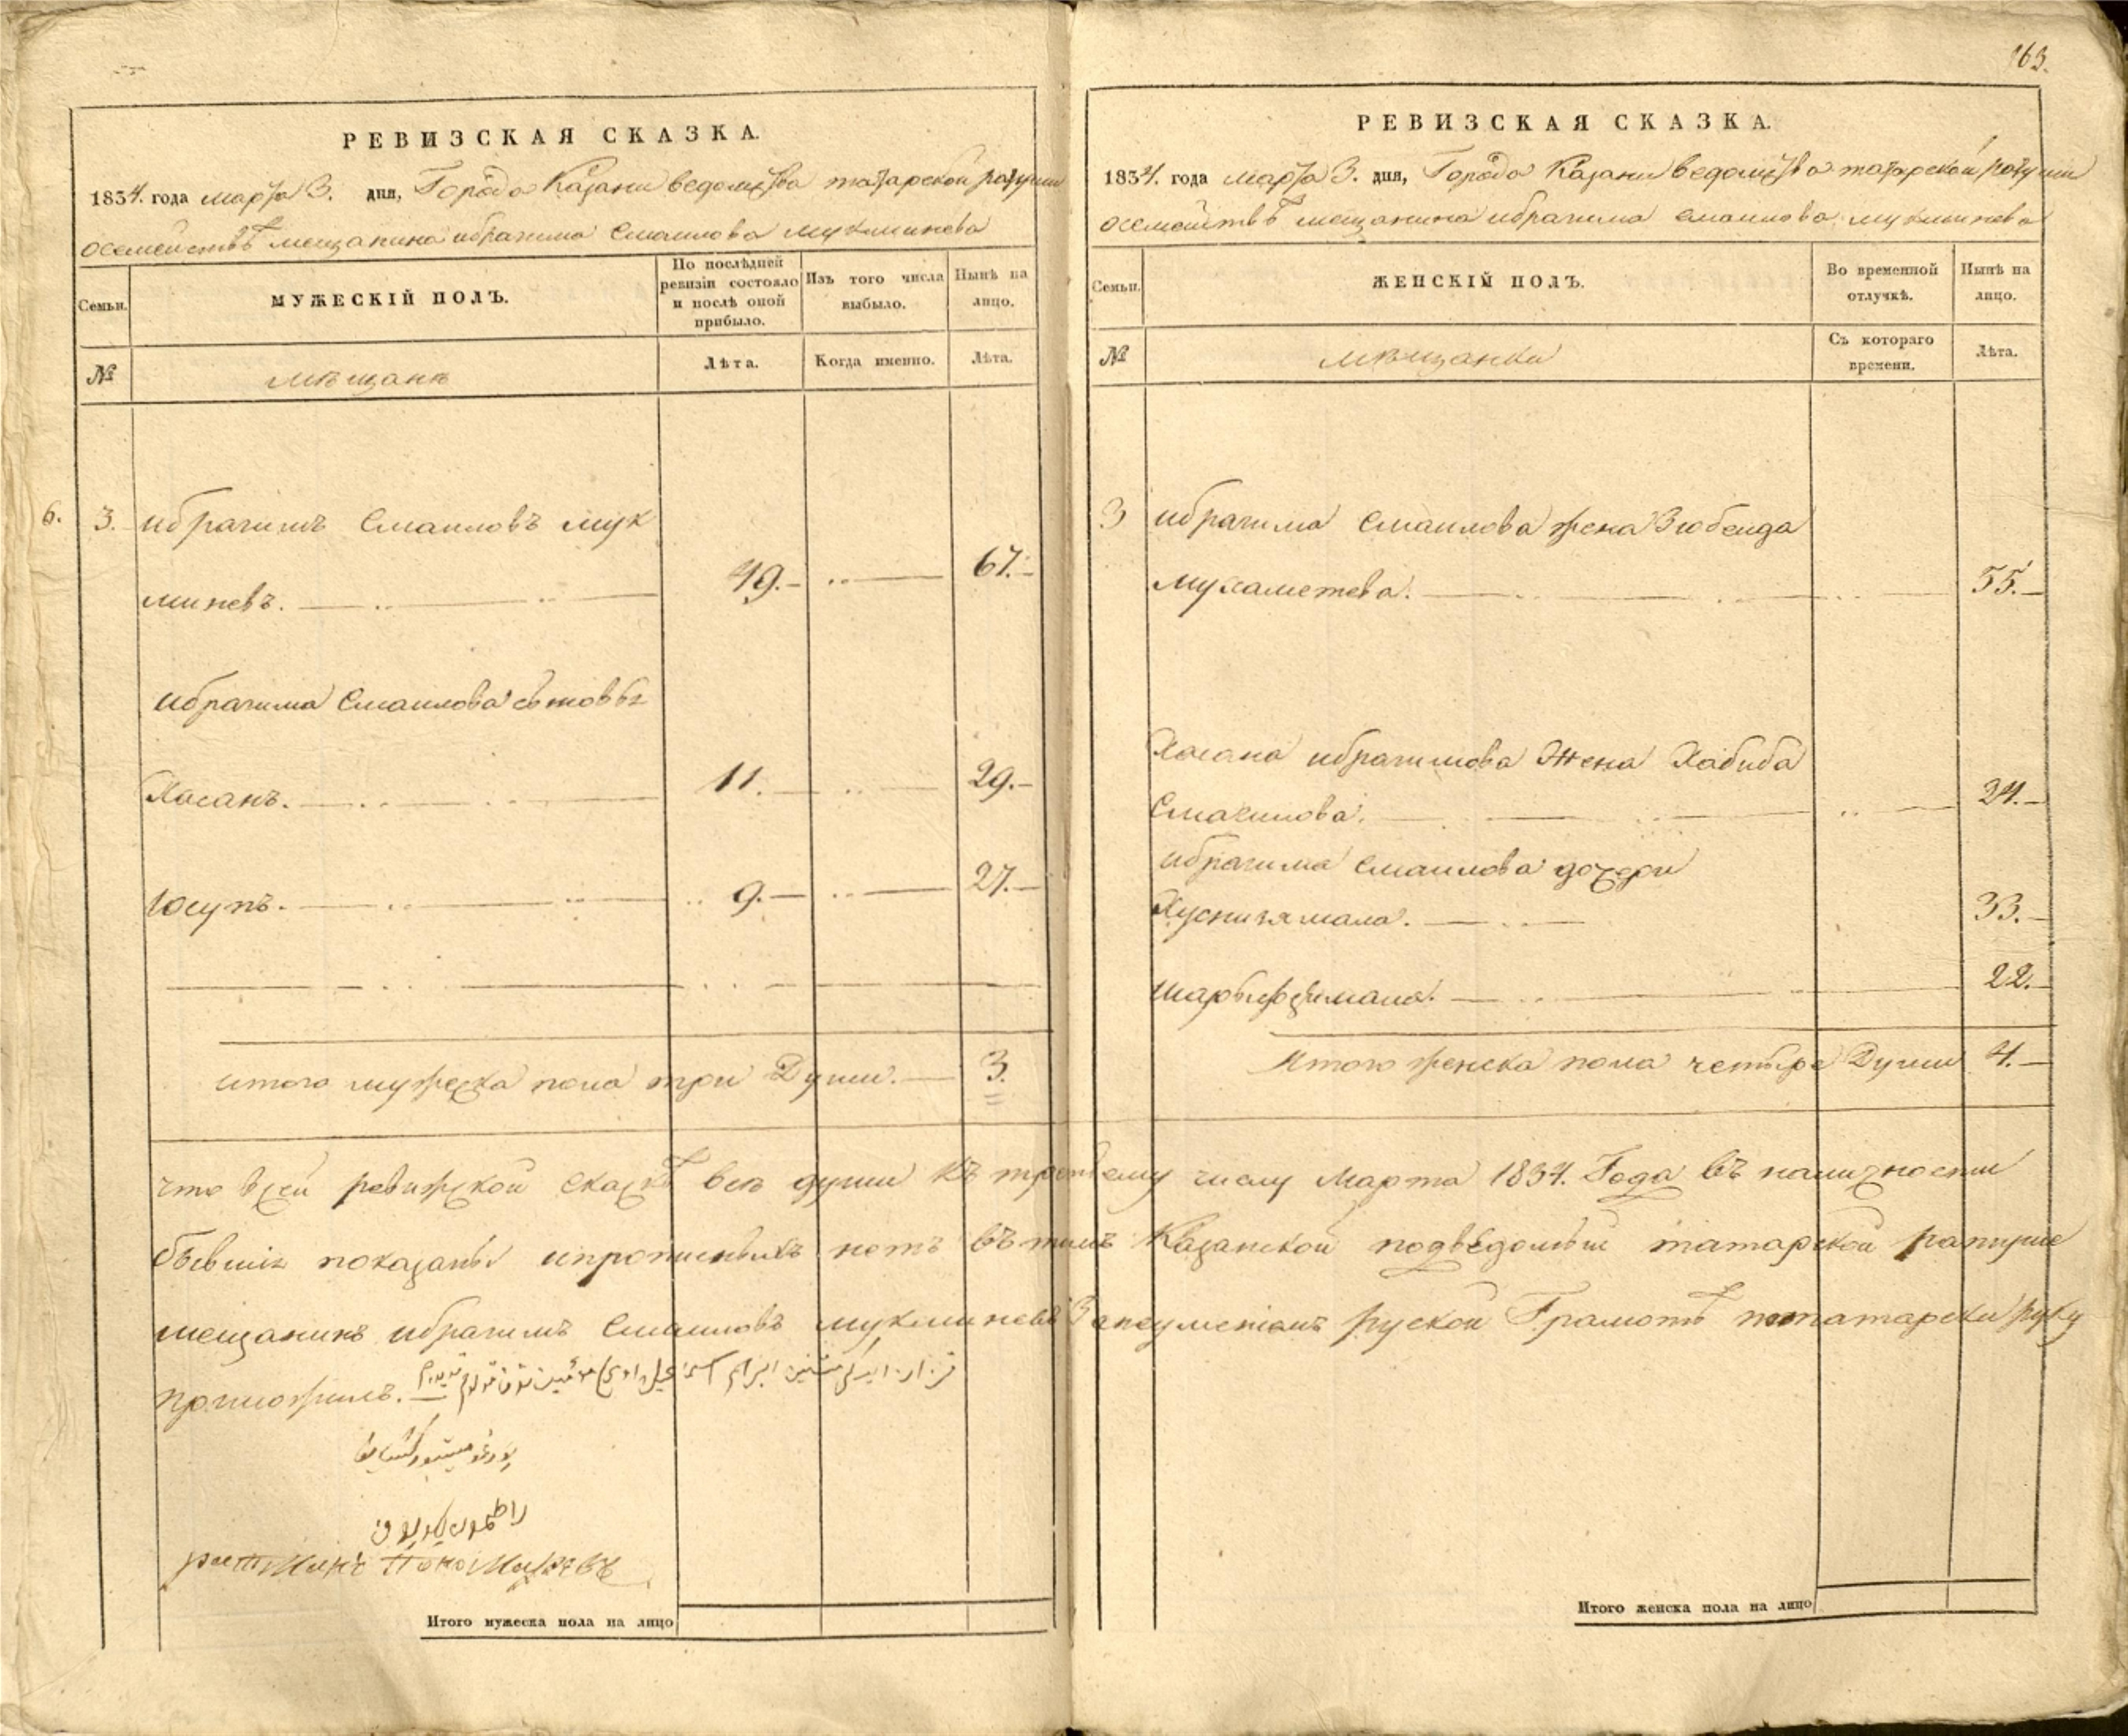 163.
РЕВИЗСКАЯ СКАЗКА.
1834. года марта 3. дня, Города Казани ведомства татарской ратуши
осемействѣ мещанина ибрагима Смаилова мукминева
Семьи.
МУЖЕСКІЙ ПОЛЪ.
По послѣдней ревизіи состояло и послѣ оной прибыло.
Изъ того числа выбыло.
Нынѣ на лицо.
№
мѣщанъ
Лѣта.
Когда именно.
Лѣта.
6. 3. ибрагимъ Смаиловъ мук
миневъ. 49. 67.
ибрагима Смаилова сыновья
Хасанъ. 11. 29.
Юсупъ. 9. 27.
итого мужеска пола три Души. 3.
РЕВИЗСКАЯ СКАЗКА.
1834. года марта 3. дня, Города Казани ведомства татарской ратуши
осемействѣ мещанина ибрагима смаилова мукминева
Семьи.
ЖЕНСКІЙ ПОЛЪ.
Во временной отлучкѣ.
Нынѣ на лицо.
№
мѣщанки
Съ котораго времени.
Лѣта.
3 ибрагима Смаилова жена Зюбеида
мухаметева. 55.
Хасана ибрагимова Жена Хабиба
Смагилова. 24.
ибрагима смаилова дочери
Хуснизямала. 33.
22.
Итого женска пола четыре Души 4.
что всеи ревижской скаскѣ все души къ третьему числу Марта 1834. Года въ наличности
бывшіе показаны ипрописныхъ нетъ въ томъ Казанской подведомый татарской ратуше
мещанинъ ибрагимъ Смаиловъ мукминевъ Занеуменіемъ руской Грамотѣ потатарски руку
приложилъ.
ратманъ
Итого мужеска пола на лицо
Итого женска пола на лицо